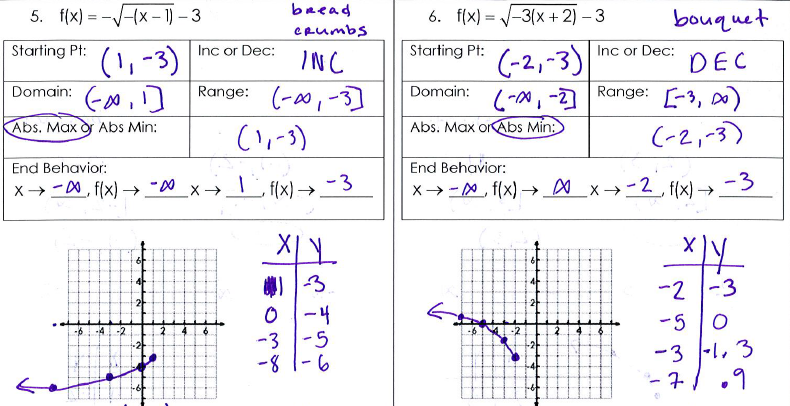 5. f(x) = -√-(x - 1) - 3
bread
crumbs
Starting Pt: (1, -3) Inc or Dec: INC
Domain: (-∞, 1] Range: (-∞, -3]
Abs. Max or Abs Min: (1, -3)
End Behavior:
x → -∞, f(x) → -∞ x → 1, f(x) → -3
6 4 2
-6 -4 -2 2 4 6
-2 -6
X Y
1 -3
0 -4
-3 -5
-8 -6
6. f(x) = √-3(x + 2) - 3
bouquet
Starting Pt: (-2, -3) Inc or Dec: DEC
Domain: (-∞, -2] Range: [-3, ∞)
Abs. Max or Abs Min: (-2, -3)
End Behavior:
x → -∞, f(x) → ∞ x → -2, f(x) → -3
6 4 2
-6 -2 2 4 6
-2 -4 -6
X Y
-2 -3
-5 0
-3 -1.3
-7 .9